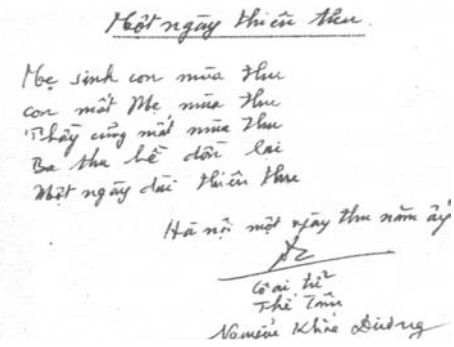 Một ngày thiên thu.
Mẹ sinh con mùa thu
con mất Mẹ mùa thu
Thầy cũng mất mùa thu
Ba thu bề dồn lại
Một ngày dài thiên thu
Hà nội một ngày thu năm ấy
Cô ai tử
Thế Tâm
Nguyễn Khắc Dương